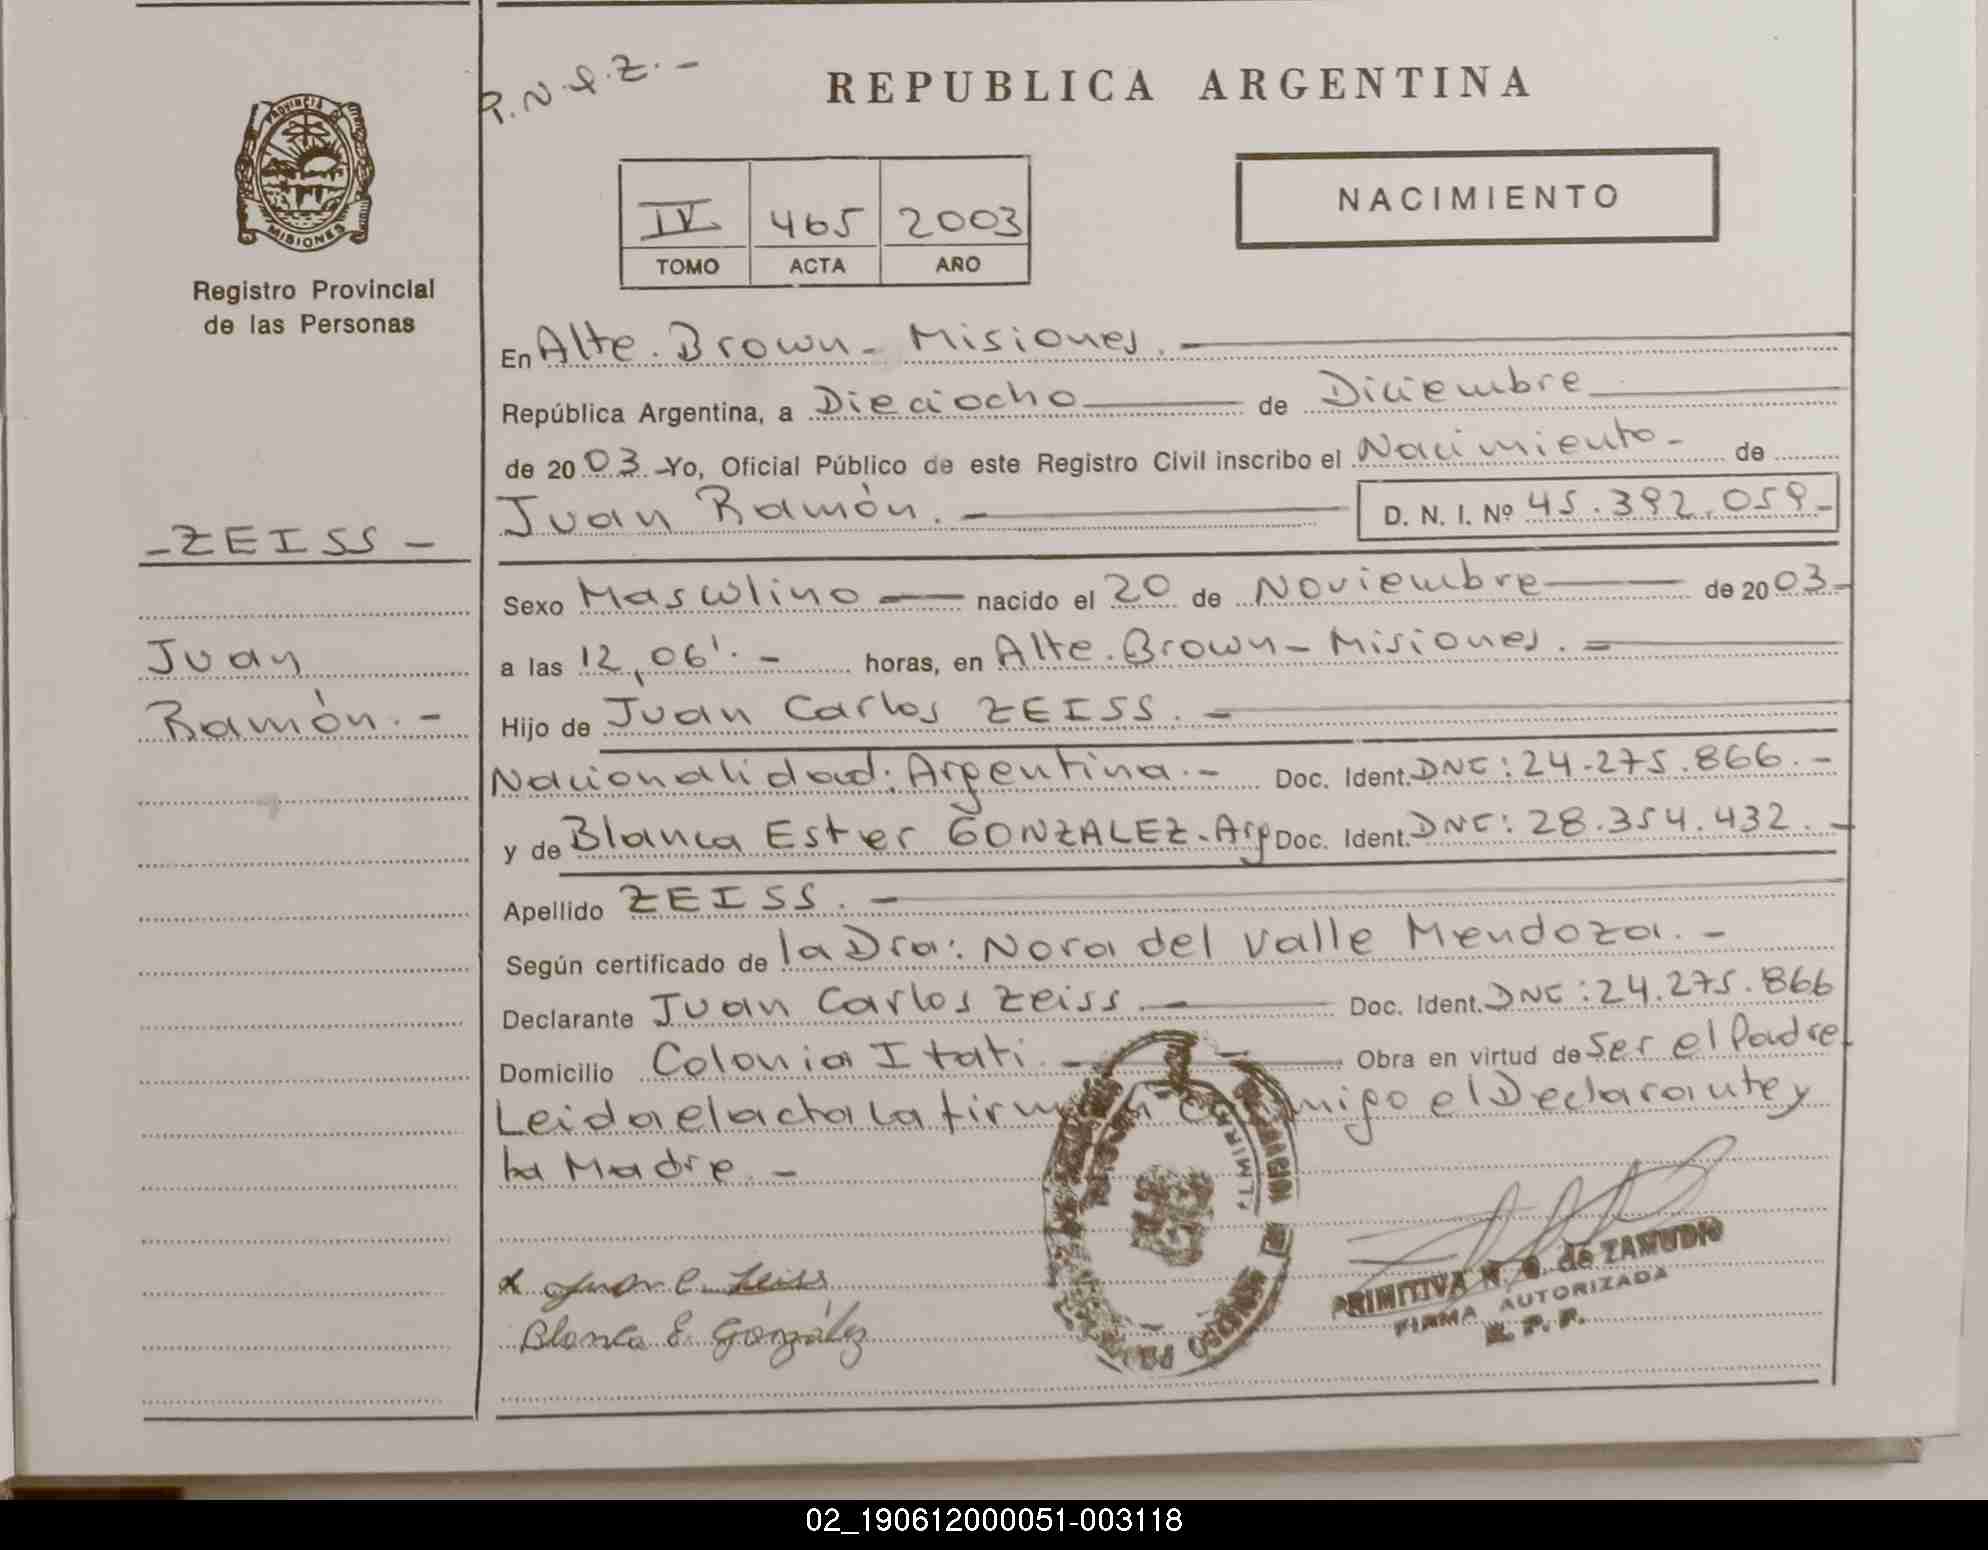 P.N.Q.Z.-
REPUBLICA ARGENTINA
PROVINCIA DE
MISIONES
Registro Provincial
de las Personas
IV 465 2003
TOMO ACTA AÑO
NACIMIENTO
En Alte. Brown - Misiones.-
República Argentina, a Dieciocho de Diciembre
de 2003.- Yo, Oficial Público de este Registro Civil inscribo el Nacimiento - de
Juan Ramón.- D. N. I. Nº 45.392.059-
- ZEISS -
Sexo Masculino nacido el 20 de Noviembre de 2003-
Juan
a las 12,06'.- horas, en Alte. Brown - Misiones.-
Ramón.-
Hijo de Juan Carlos ZEISS.-
Nacionalidad: Argentina.- Doc. Ident. DNI: 24.275.866.-
y de Blanca Ester GONZALEZ - Arg Doc. Ident. DNI: 28.354.432.-
Apellido ZEISS.-
Según certificado de la Dra: Nora del Valle Mendoza.-
Declarante Juan Carlos Zeiss.- Doc. Ident. DNI: 24.275.866
Domicilio Colonia Itati.- Obra en virtud de Ser el Padre
Leida el acta la firman conmigo el Declarante y
la Madre.-
x Juan C. Zeiss
Blanca E. González
PRIMITIVA N. de ZAMUDIO
FIRMA AUTORIZADA
R. P. P.
02_190612000051-003118